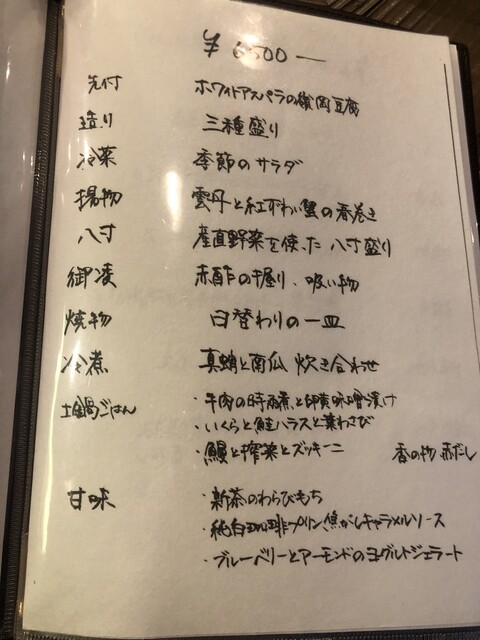 ¥6500ー
先付 ホワイトアスパラの嶺岡豆腐
造り 三種盛り
冷菜 季節のサラダ
揚物 雲丹と紅ずわい蟹の春巻き
八寸 産直野菜を使った八寸盛り
御凌 赤酢の握り、吸い物
焼物 日替わりの一皿
冷煮 真蛸と南瓜 炊き合わせ
土鍋ごはん ・牛肉の時雨煮と卵黄味噌漬け
・いくらと鮭ハラスと葉わさび
・鰻と搾菜とズッキーニ 香の物 赤だし
甘味 ・新茶のわらびもち
・純白珈琲プリン焦がしキャラメルソース
・ブルーベリーとアーモンドのヨーグルトジェラート